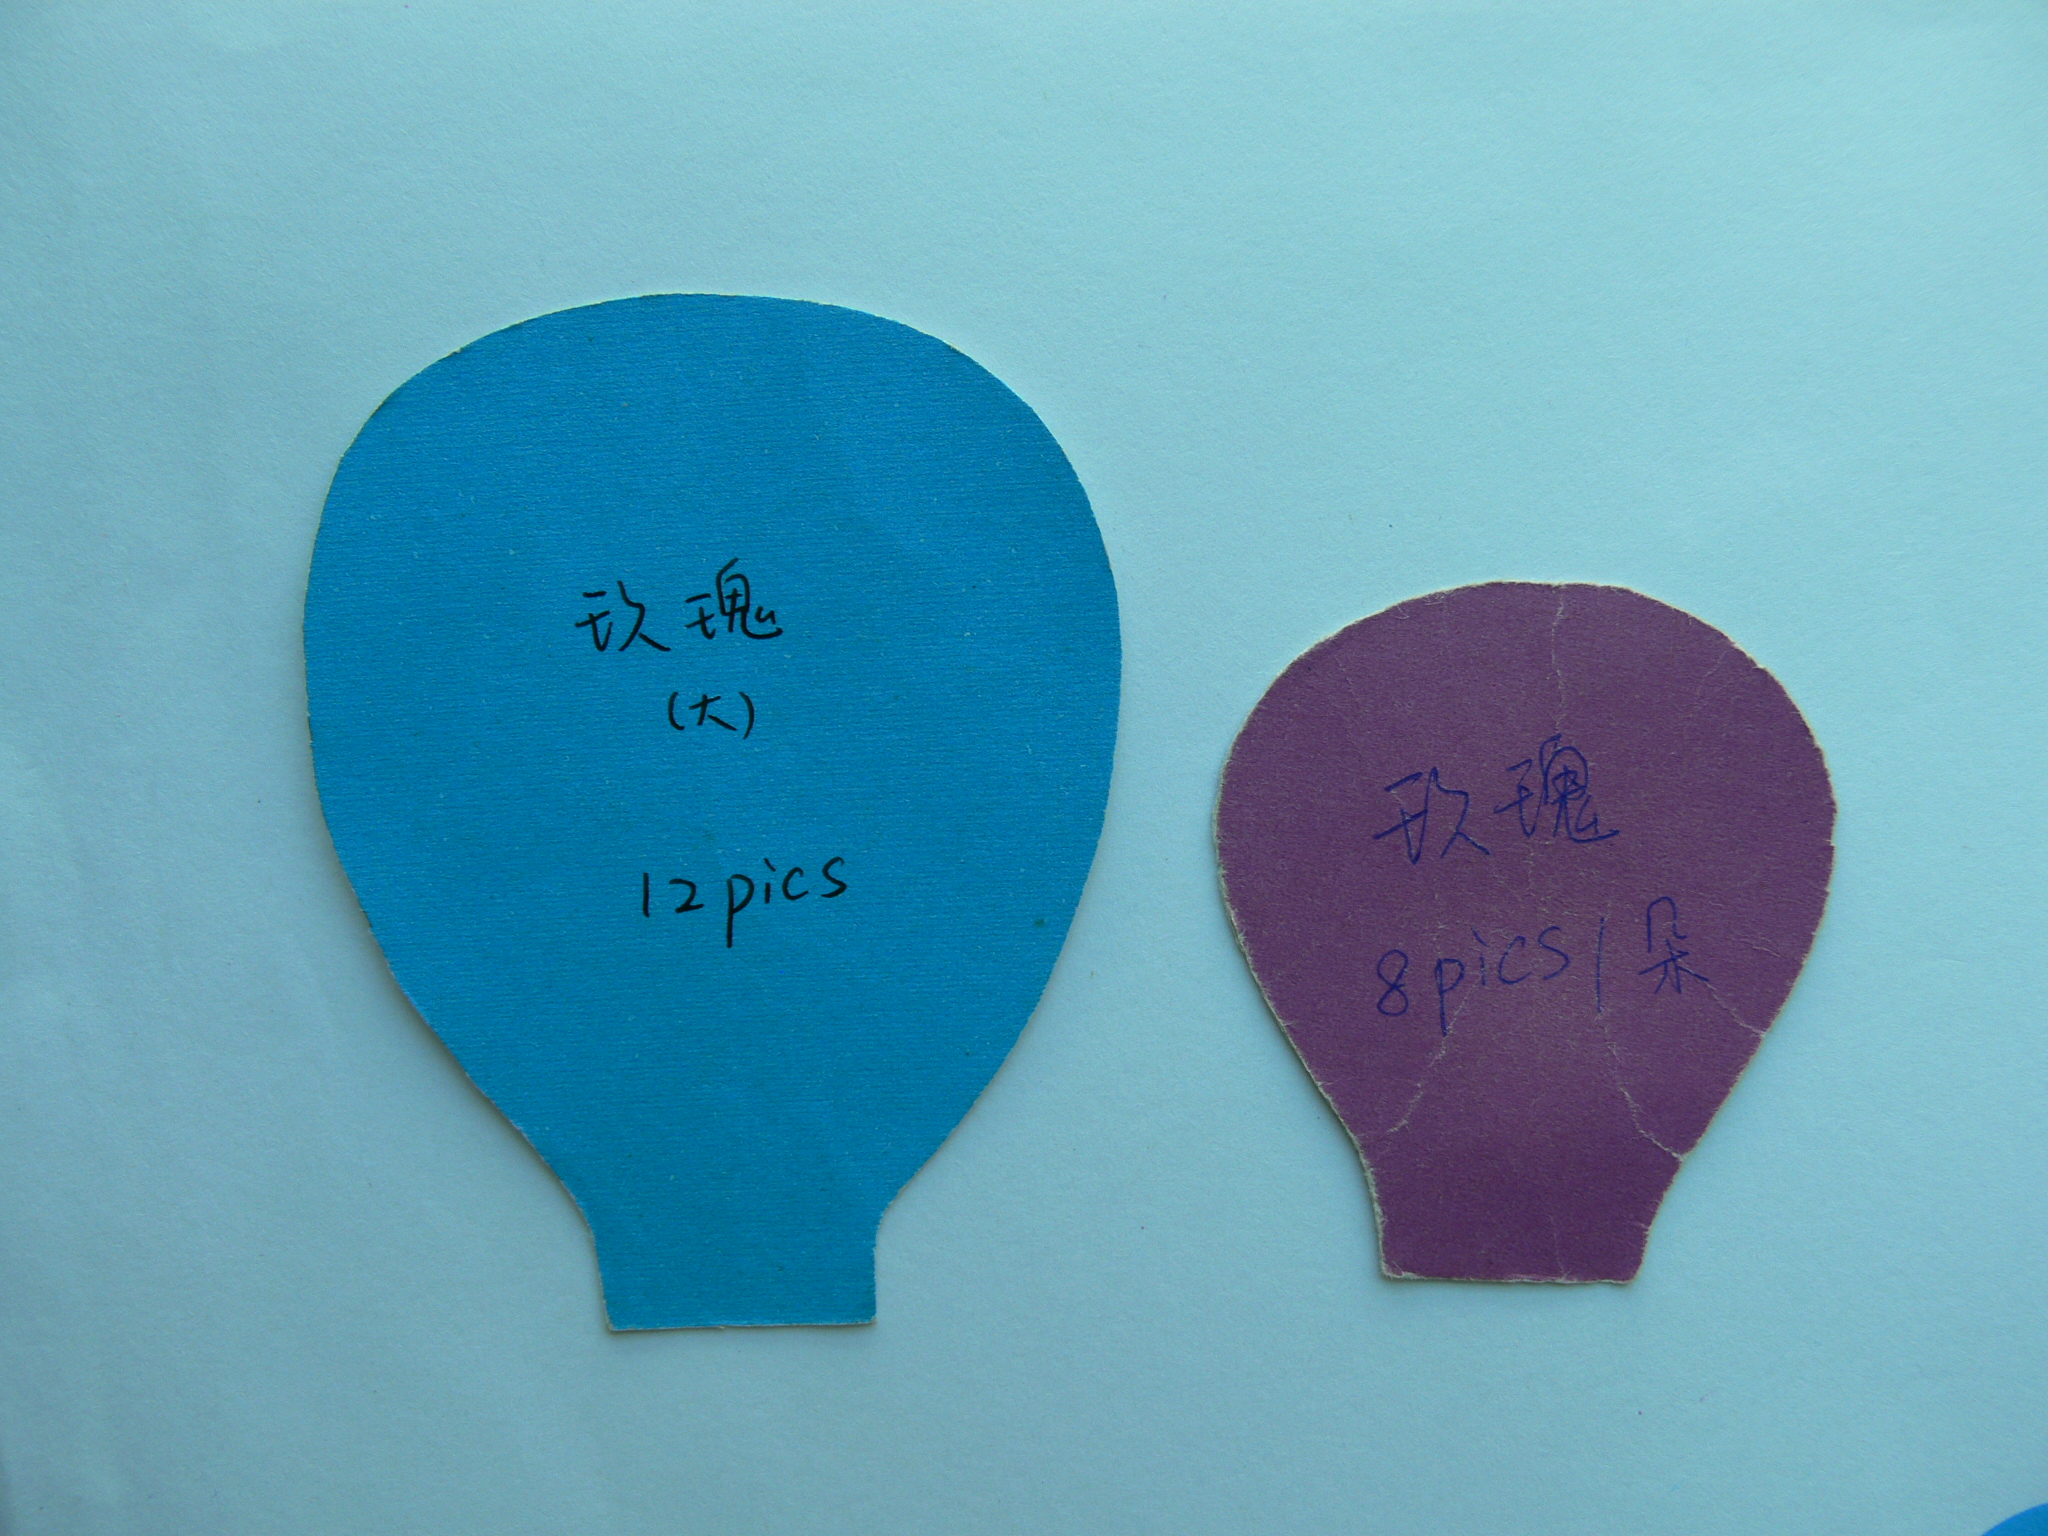 玫瑰
(大)
12pics
玫瑰
8pics/朵